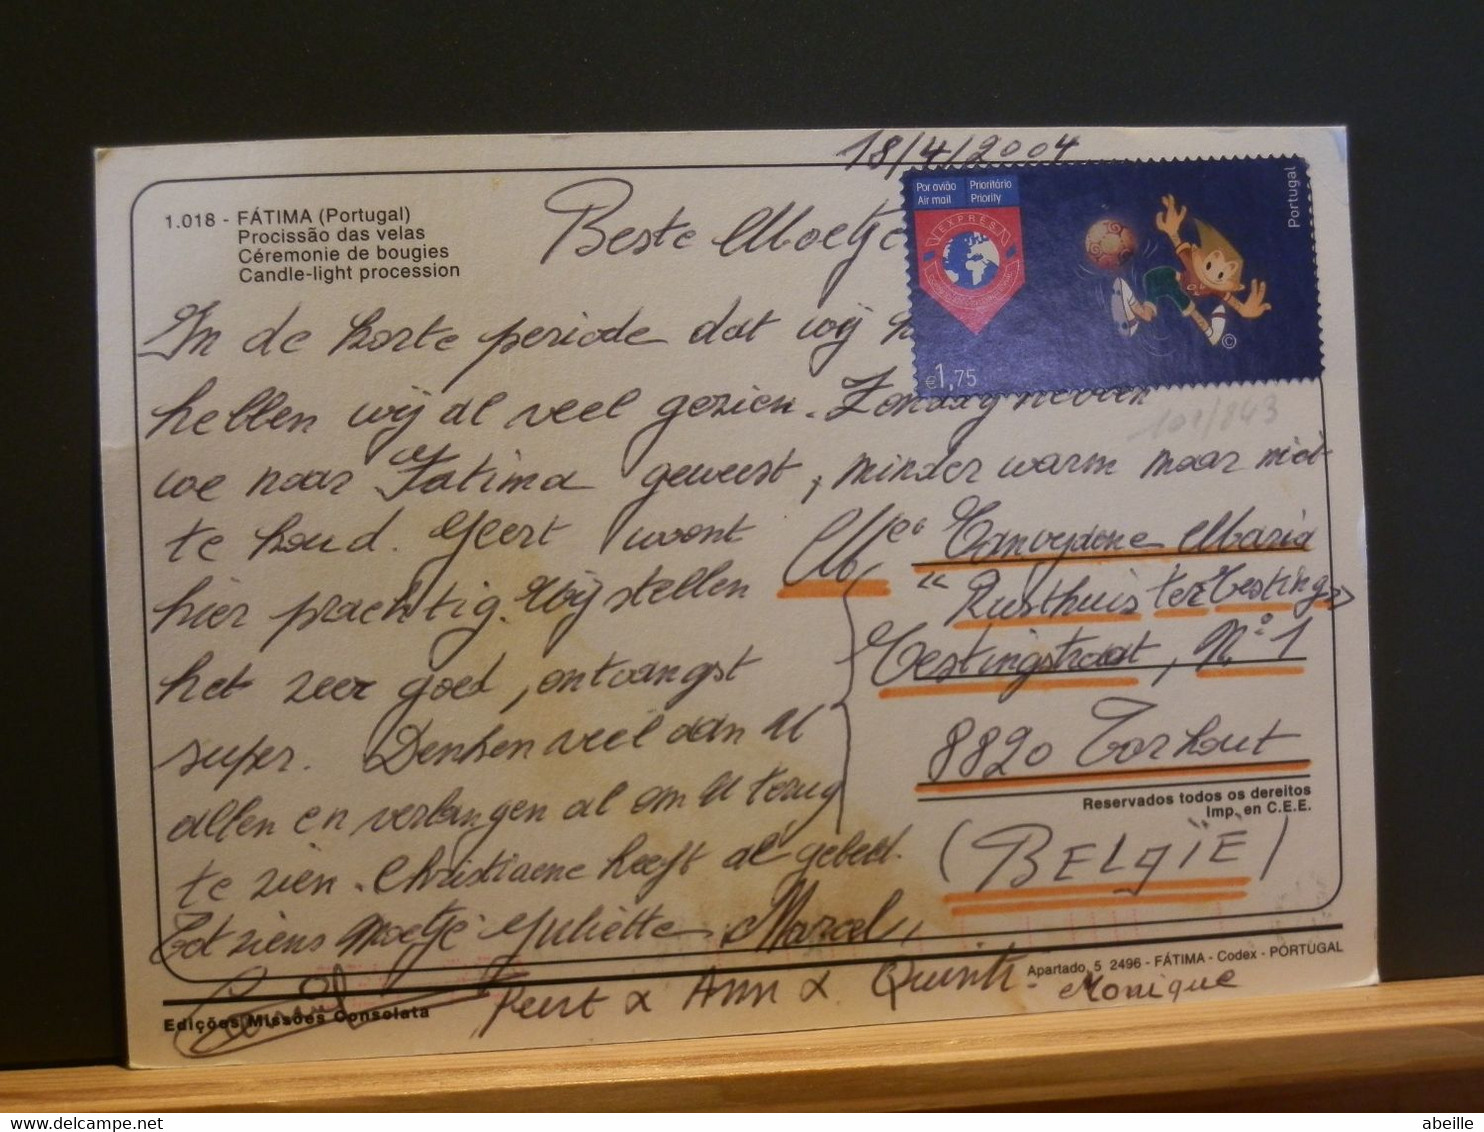 18/4/2004
1.018 - FÁTIMA (Portugal)
Procissão das velas
Céremonie de bougies
Candle-light procession
Por avião
Air mail
Prioritário
Priority
EXPRES
Portugal
©
€1,75
101/843
Beste Moetje
In de korte periode dat wij h
hellen wij al veel gezien. Zondag
we naar Fatima geweest, minder warm maar niet
te koud. Geert woont
hier prachtig. Wij stellen
het zeer goed, ontvangst
super. Denken veel aan U
allen en verlangen al om U terug
te zien. Christiaene heeft al gebeld.
Tot ziens Moetje Juliëtte Marcel
Geert & Ann & Quinti
Monique
Maria
"Rusthuis ter Bestinge"
Bestingstraat, N° 1
8820 Torhout
(BELGIË)
Reservados todos os dereitos
Imp. en C.E.E.
Apartado, 5 2496 - FÁTIMA - Codex - PORTUGAL
Edições Missões Consolata
abeille